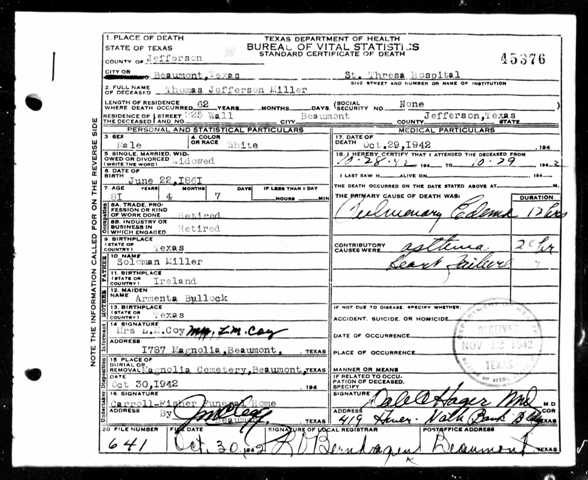 TEXAS DEPARTMENT OF HEALTH
BUREAU OF VITAL STATISTICS
STANDARD CERTIFICATE OF DEATH
45376
1. PLACE OF DEATH
STATE OF TEXAS
COUNTY OF Jefferson
CITY OR Beaumont, Texas
St. Thresa Hospital
GIVE STREET AND NUMBER OR NAME OF INSTITUTION
2. FULL NAME OF DECEASED Thomas Jefferson Miller
LENGTH OF RESIDENCE WHERE DEATH OCCURRED 62 YEARS MONTHS DAYS (SOCIAL SECURITY NO. None
RESIDENCE OF THE DECEASED (STREET AND NO. 925 Wall CITY Beaumont COUNTY Jefferson, Texas STATE
PERSONAL AND STATISTICAL PARTICULARS
3. SEX Male
4. COLOR OR RACE White
5. SINGLE, MARRIED, WIDOWED OR DIVORCED (WRITE THE WORD) Widowed
6. DATE OF BIRTH June 22, 1861
7. AGE YEARS MONTHS DAYS IF LESS THAN 1 DAY
81 4 7 HOURS MIN
8A. TRADE, PROFESSION OR KIND OF WORK DONE Retired
8B. INDUSTRY OR BUSINESS IN WHICH ENGAGED Retired
9. BIRTHPLACE (STATE OR COUNTRY) Texas
10. NAME Soloman Miller
11. BIRTHPLACE (STATE OR COUNTRY) Ireland
12. MAIDEN NAME Armenta Bullock
13. BIRTHPLACE (STATE OR COUNTRY) Texas
14. SIGNATURE Mrs L.M.Coy Mrs L.M. Coy
ADDRESS 1787 Magnolia, Beaumont, TEXAS
15. PLACE OF BURIAL OR REMOVAL Magnolia Cemetery, Beaumont, TEXAS
DATE Oct 30, 1942 194
16. SIGNATURE Carroll-Fisher Funeral Home
ADDRESS By
TEXAS
MEDICAL PARTICULARS
17. DATE OF DEATH Oct. 29, 1942 194
18. I HEREBY CERTIFY THAT I ATTENDED THE DECEASED FROM
10-28-42 TO 10-29 1942
I LAST SAW H ALIVE ON 194
THE DEATH OCCURRED ON THE DATE STATED ABOVE AT M.
THE PRIMARY CAUSE OF DEATH WAS: DURATION
Pulmonary Edema 12 hrs
CONTRIBUTORY CAUSES WERE: asthma
heart failure
IF NOT DUE TO DISEASE, SPECIFY WHETHER:
ACCIDENT, SUICIDE, OR HOMICIDE
DATE OF OCCURRENCE
PLACE OF OCCURRENCE
MANNER OR MEANS
IF RELATED TO OCCUPATION OF DECEASED, SPECIFY
RECEIVED
NOV 1942
TEXAS
SIGNATURE Dale O Hager M.D.
ADDRESS 419 Natl Bank Bldg TEXAS
20. FILE NUMBER FILE DATE SIGNATURE OF LOCAL REGISTRAR POSTOFFICE ADDRESS
641 Oct. 30, 1942 Beaumont TEXAS
NOTE THE INFORMATION CALLED FOR ON THE REVERSE SIDE